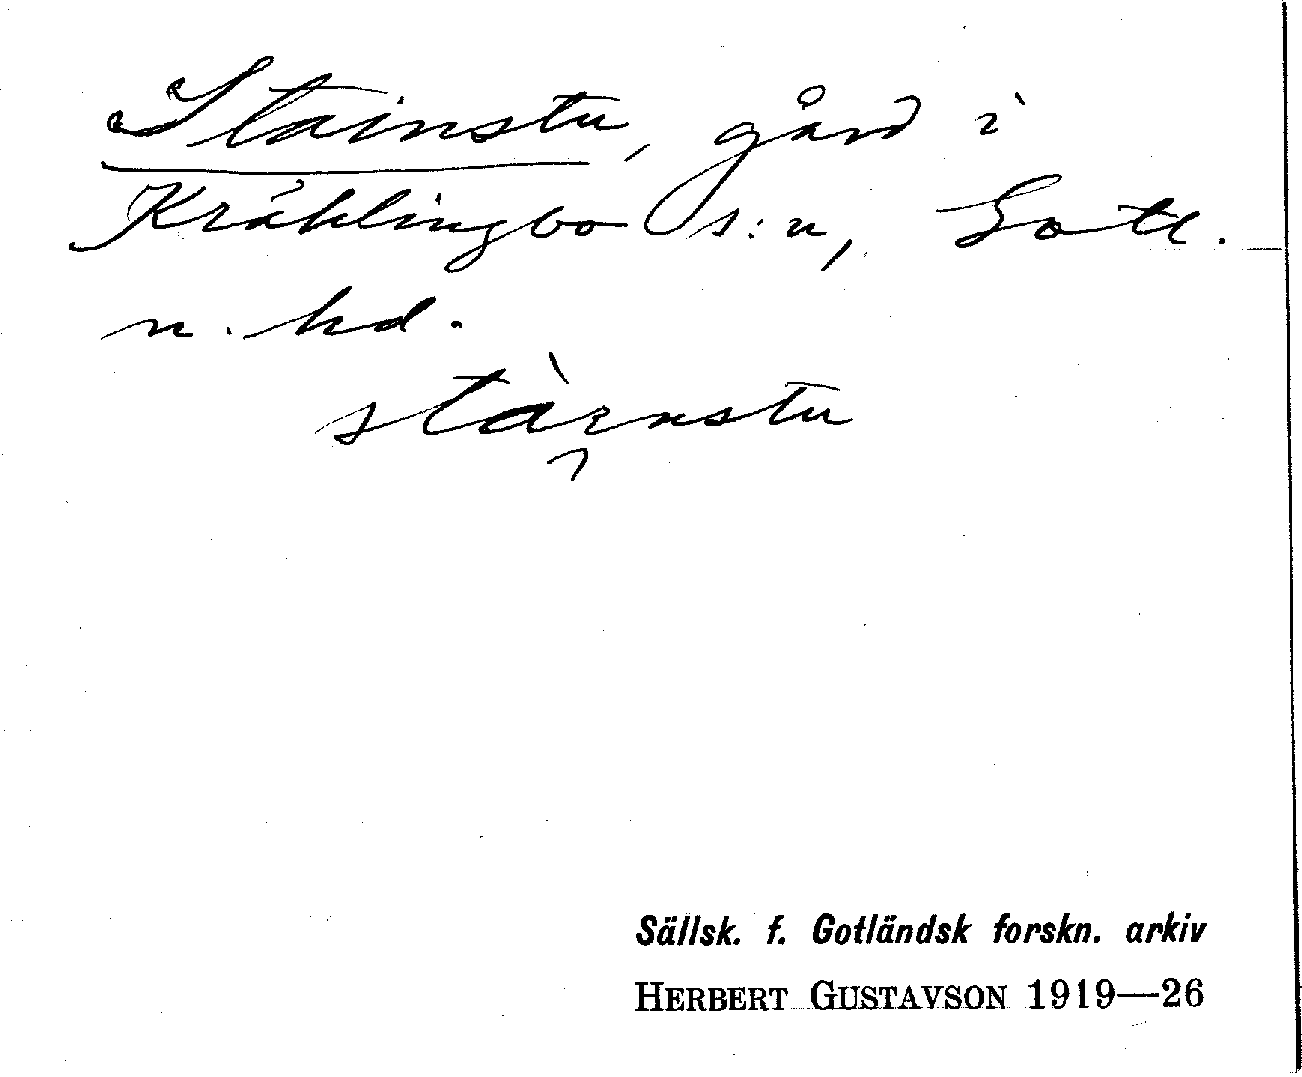 Stainstu, gård i
Kräklingbo s:n, Gotl.
n. hd.
Sällsk. f. Gotländsk forskn. arkiv
HERBERT GUSTAVSON 1919—26